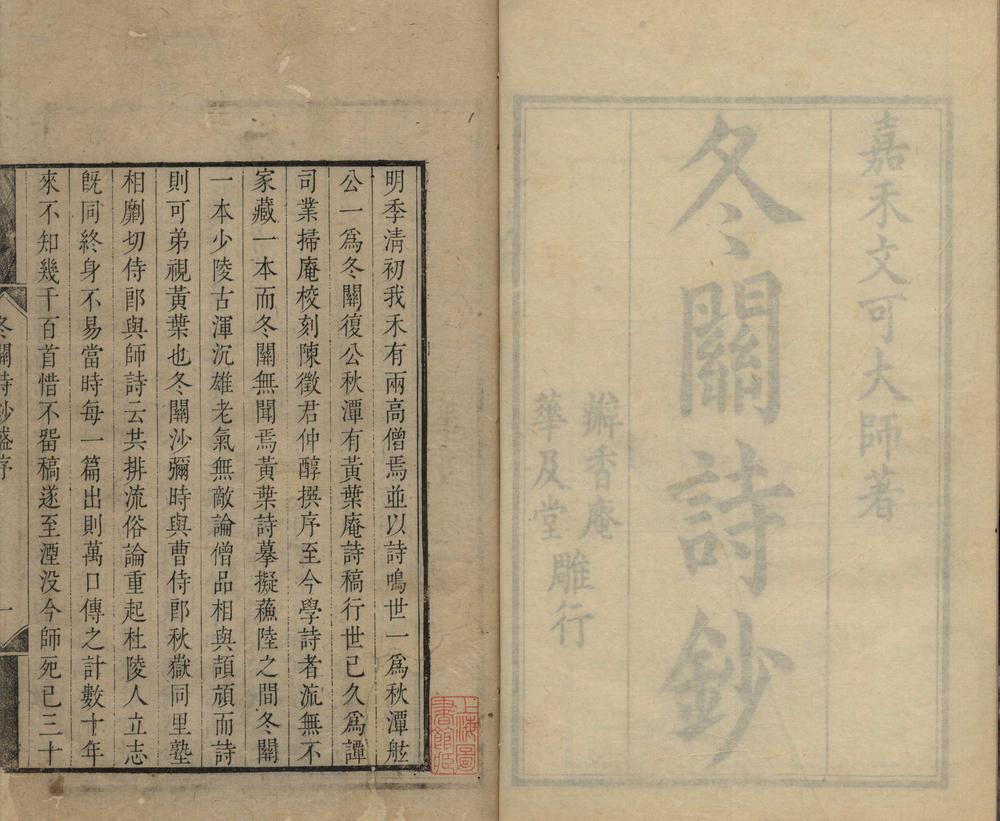 嘉禾文可大師著
冬關詩鈔
辦香庵
華及堂
雕行
明季清初我禾有兩高僧焉並以詩鳴世一爲秋潭舷
公一爲冬關復公秋潭有黃葉庵詩稿行世已久爲譚
司業掃庵校刻陳徵君仲醇撰序至今學詩者流無不
家藏一本而冬關無聞焉黃葉詩摹擬蘓陸之間冬關
一本少陵古渾沉雄老氣無敵論僧品相與頡頏而詩
則可弟視黃葉也冬關沙彌時與曹侍郎秋嶽同里塾
相劘切侍郎與師詩云共排流俗論重起杜陵人立志
旣同終身不易當時每一篇出則萬口傳之計數十年
來不知幾千百首惜不畱稿遂至湮没今師死已三十
冬關詩鈔盛序
一
上海圖
書館藏